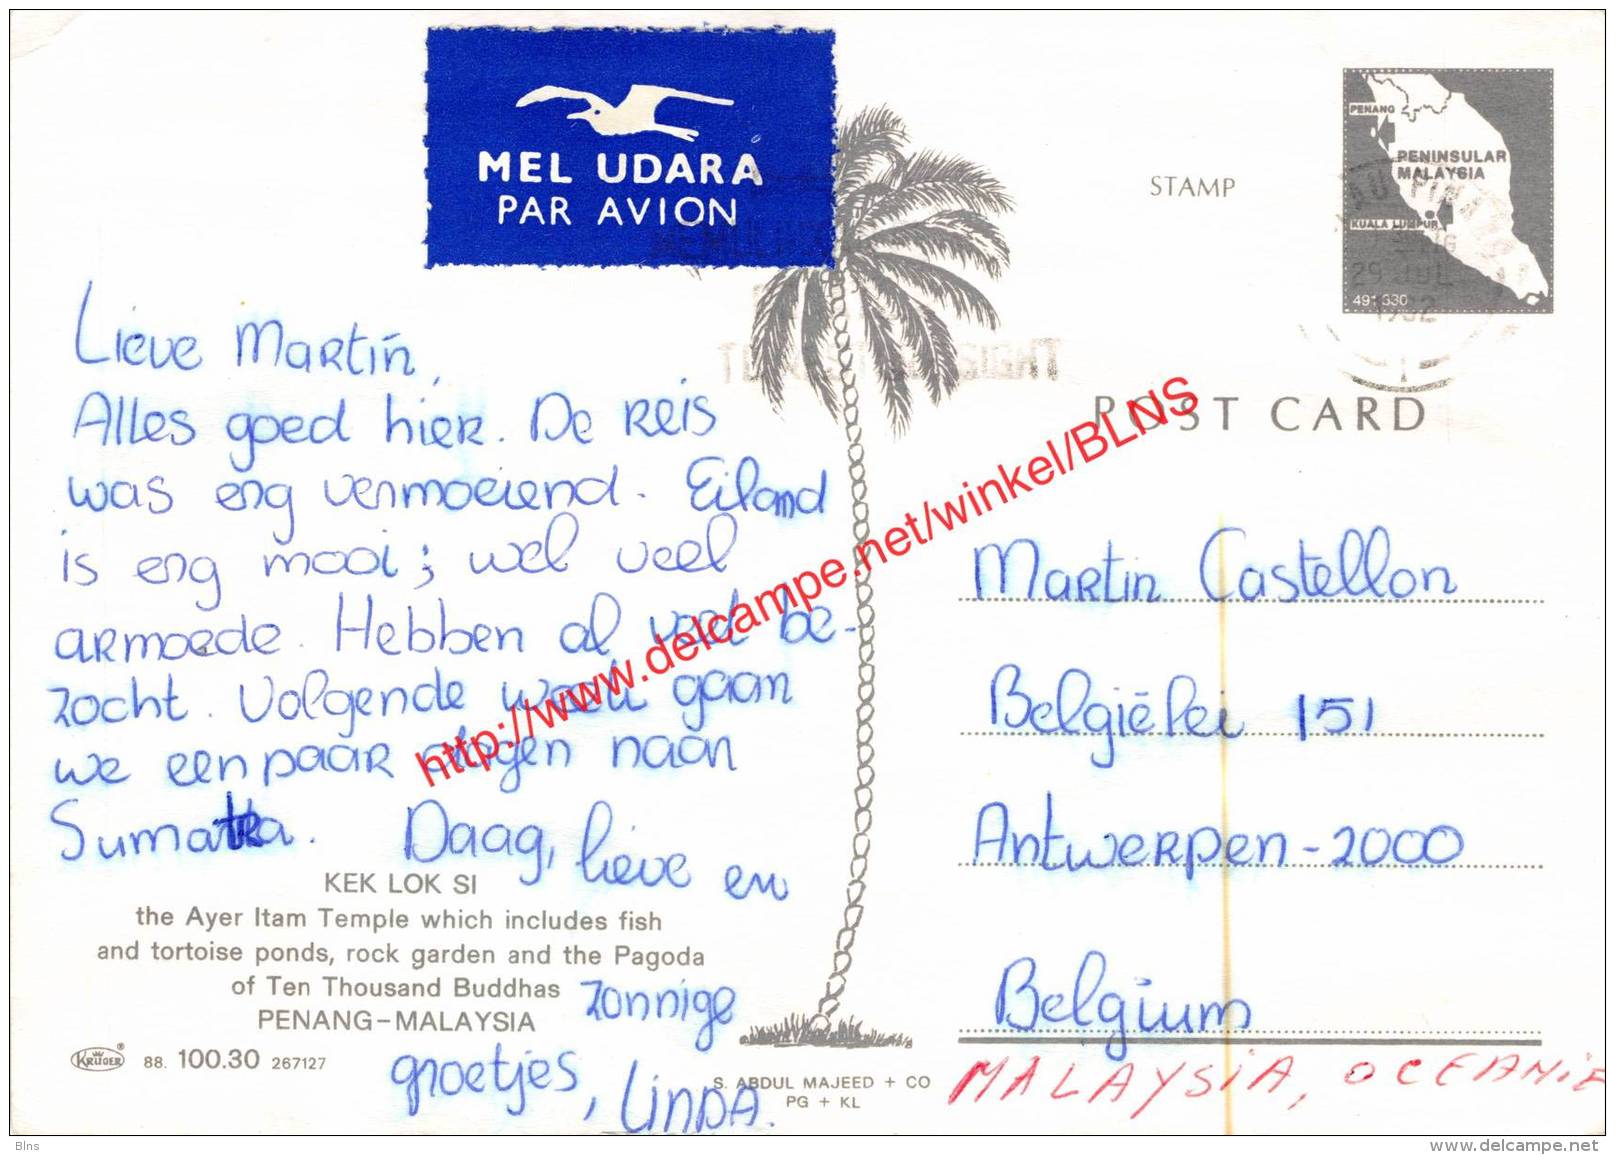 MEL UDARA
PAR AVION
STAMP
PENANG
PENINSULAR
MALAYSIA
KUALA LUMPUR
491 330
29 JUL
POST CARD
Lieve Martin,
Alles goed hier. De reis
was erg vermoeiend. Eiland
is erg mooi; wel veel
armoede. Hebben al veel be-
zocht. Volgende week gaan
we een paar dagen naar
Sumatra. Daag, lieve en
zonnige
groetjes, Linda.
KEK LOK SI
the Ayer Itam Temple which includes fish
and tortoise ponds, rock garden and the Pagoda
of Ten Thousand Buddhas
PENANG-MALAYSIA
KRÜGER 88. 100.30 267127
S. ABDUL MAJEED + CO
PG + KL
Martin Castellon
Belgiëlei 151
Antwerpen-2000
Belgium
MALAYSIA, OCEANIE
http://www.delcampe.net/winkel/BLNS
Blns
www.delcampe.net